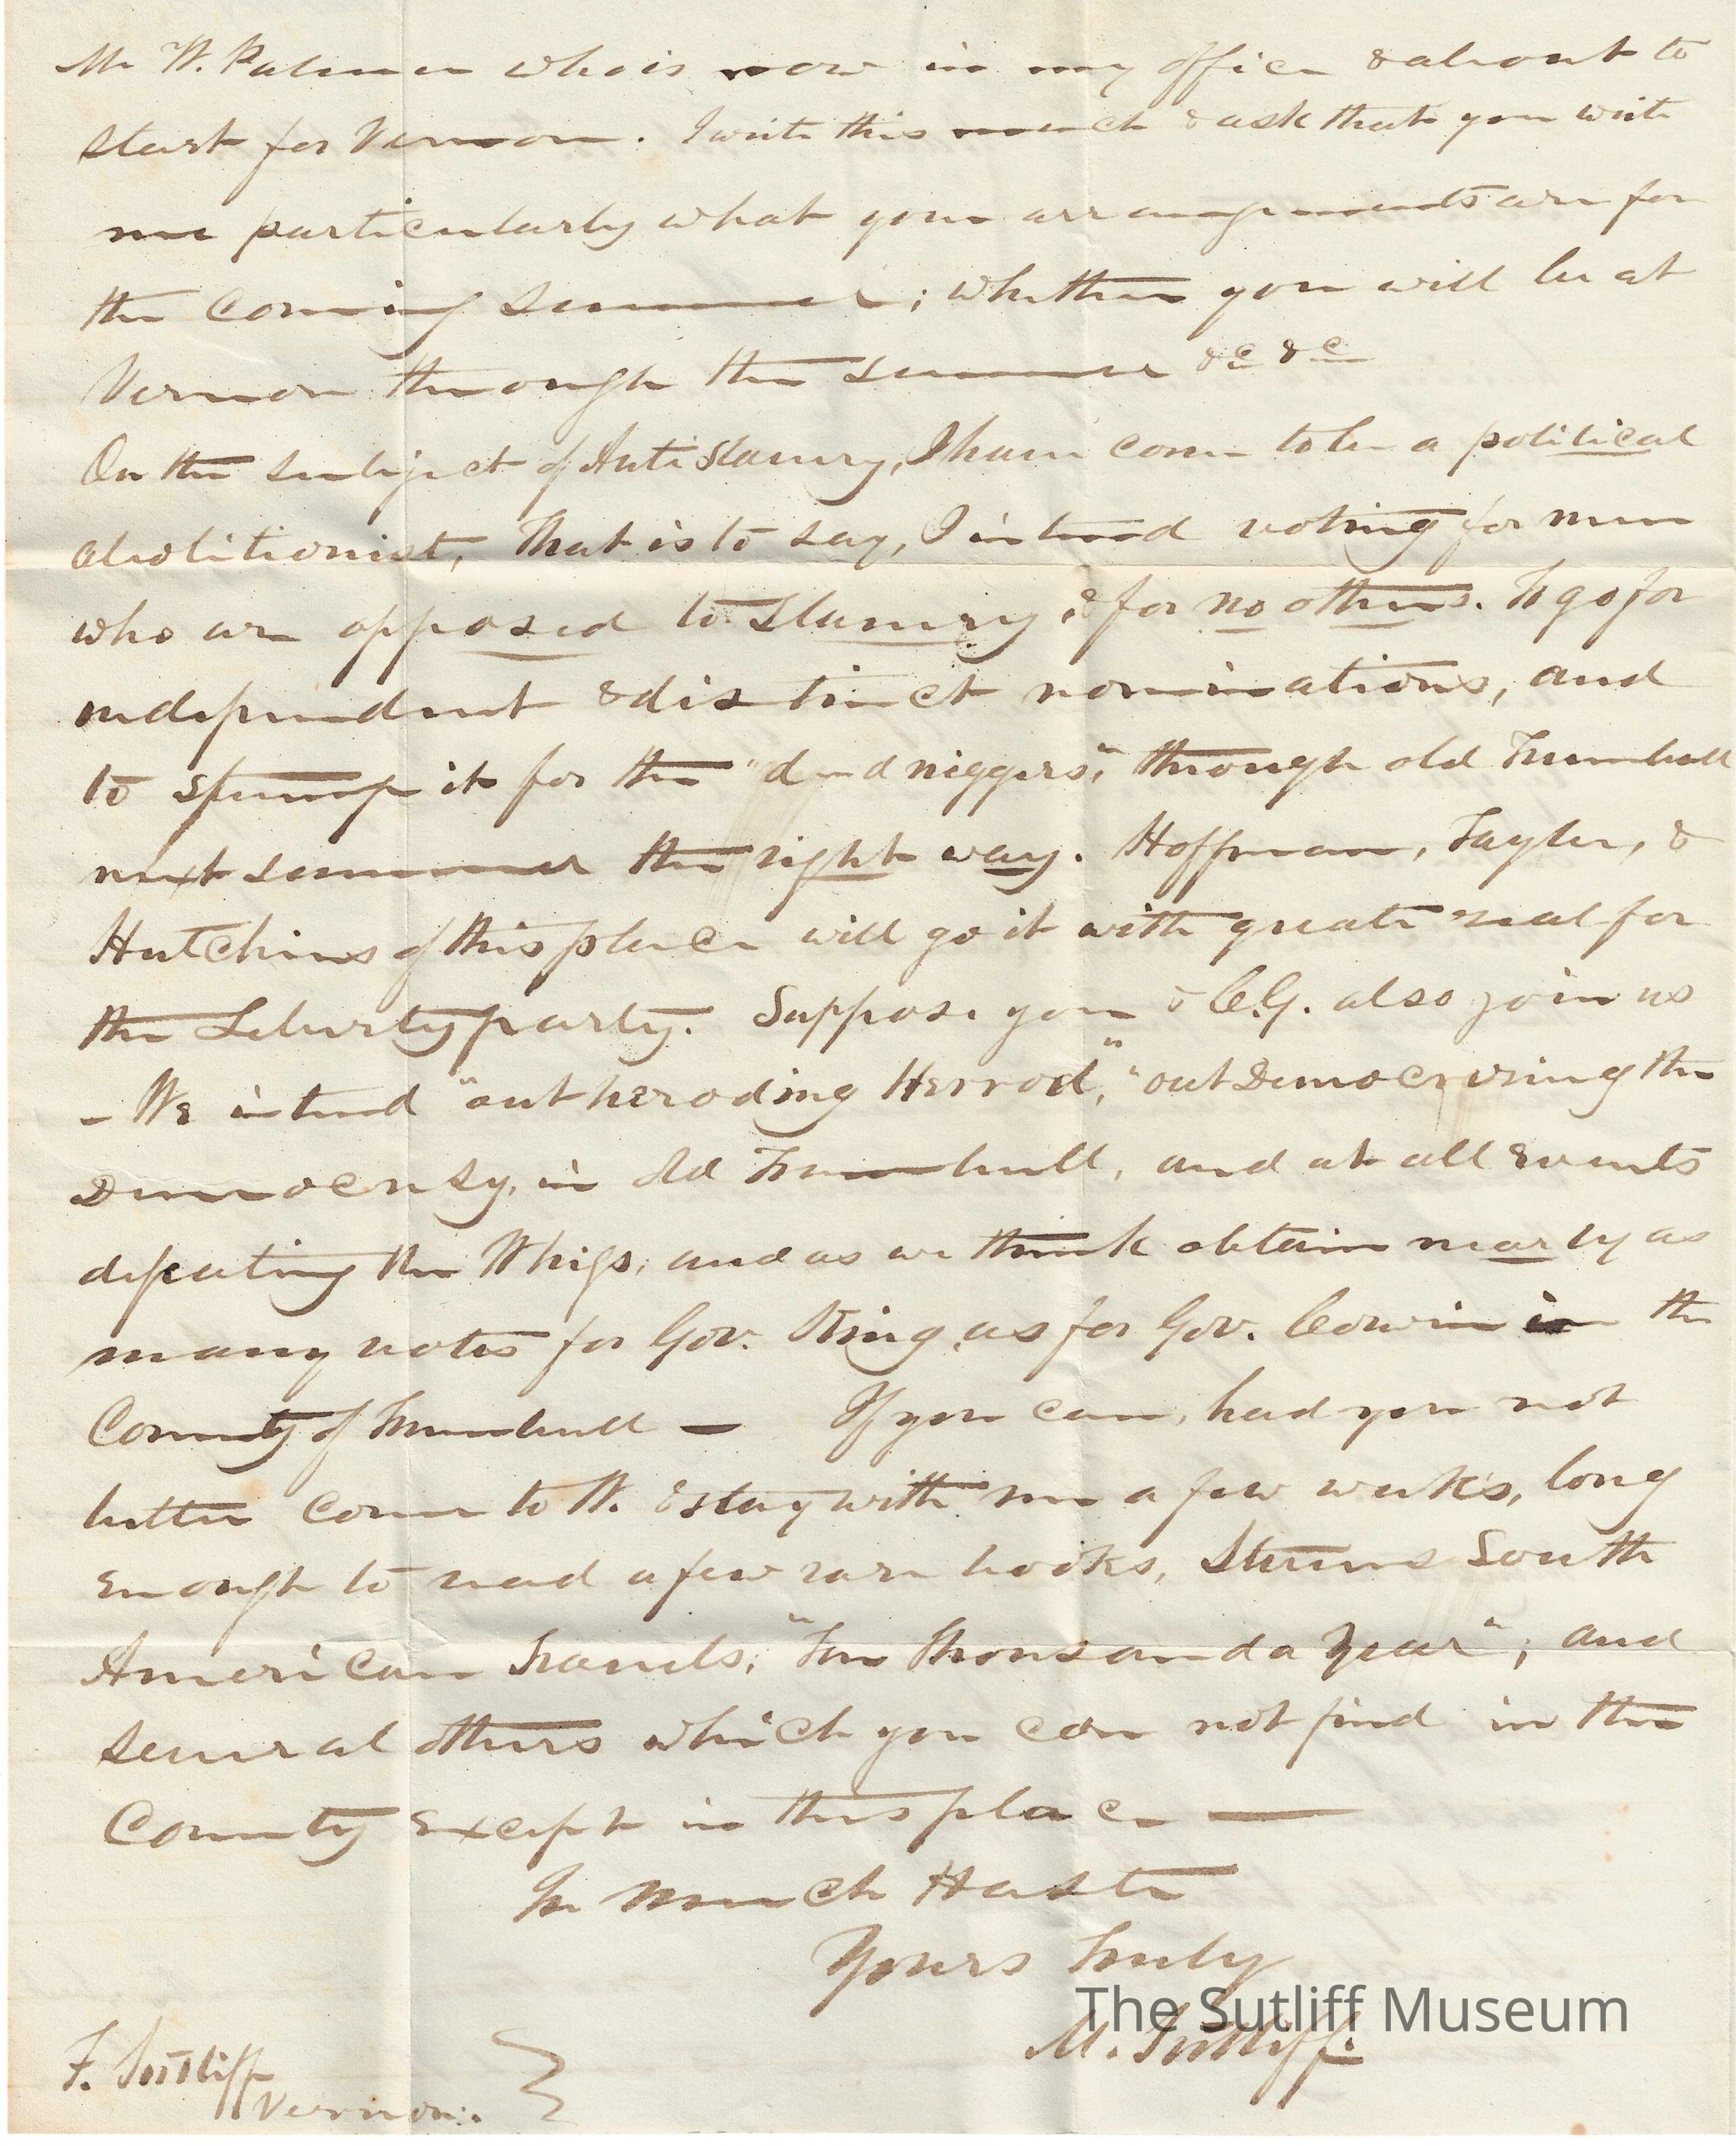 Mr W. Palmer who is now in my office & about to
start for Vernon. I write this much & ask that you write
me particularly what your arrangements are for
the coming summer; whether you will be at
Vernon through the summer &c &c
On the subject of Anti Slavery, I have come to be a political
abolitionist, That is to say, I intend voting for men
who are opposed to Slavery, & for no others. To go for
independent & distinct nominations, and
to stump it for the "dead niggers," through old Trumbull
next summer the right way. Hoffman, Tayler, &
Hutchins of this place will go it with great zeal for
the Liberty party. Suppose you & C.G. also join us
- We intend "out heroding Herrod," "out Democrising the
Democracy, in Old Trumbull, and at all Events
defeating the Whigs, and as we think obtain nearly as
many votes for Gov. King as for Gov. Corwin in the
County of Trumbull — If you can, had you not
better come to W. & stay with me a few weeks, long
Enough to read a few rare books, Stevens South
American Travels, "Ten Thousand a Year"; and
several others which you can not find in the
County Except in this place —
In Much Haste
Yours Truly
M. Sutliff.
F. Sutliff
Vernon.
The Sutliff Museum